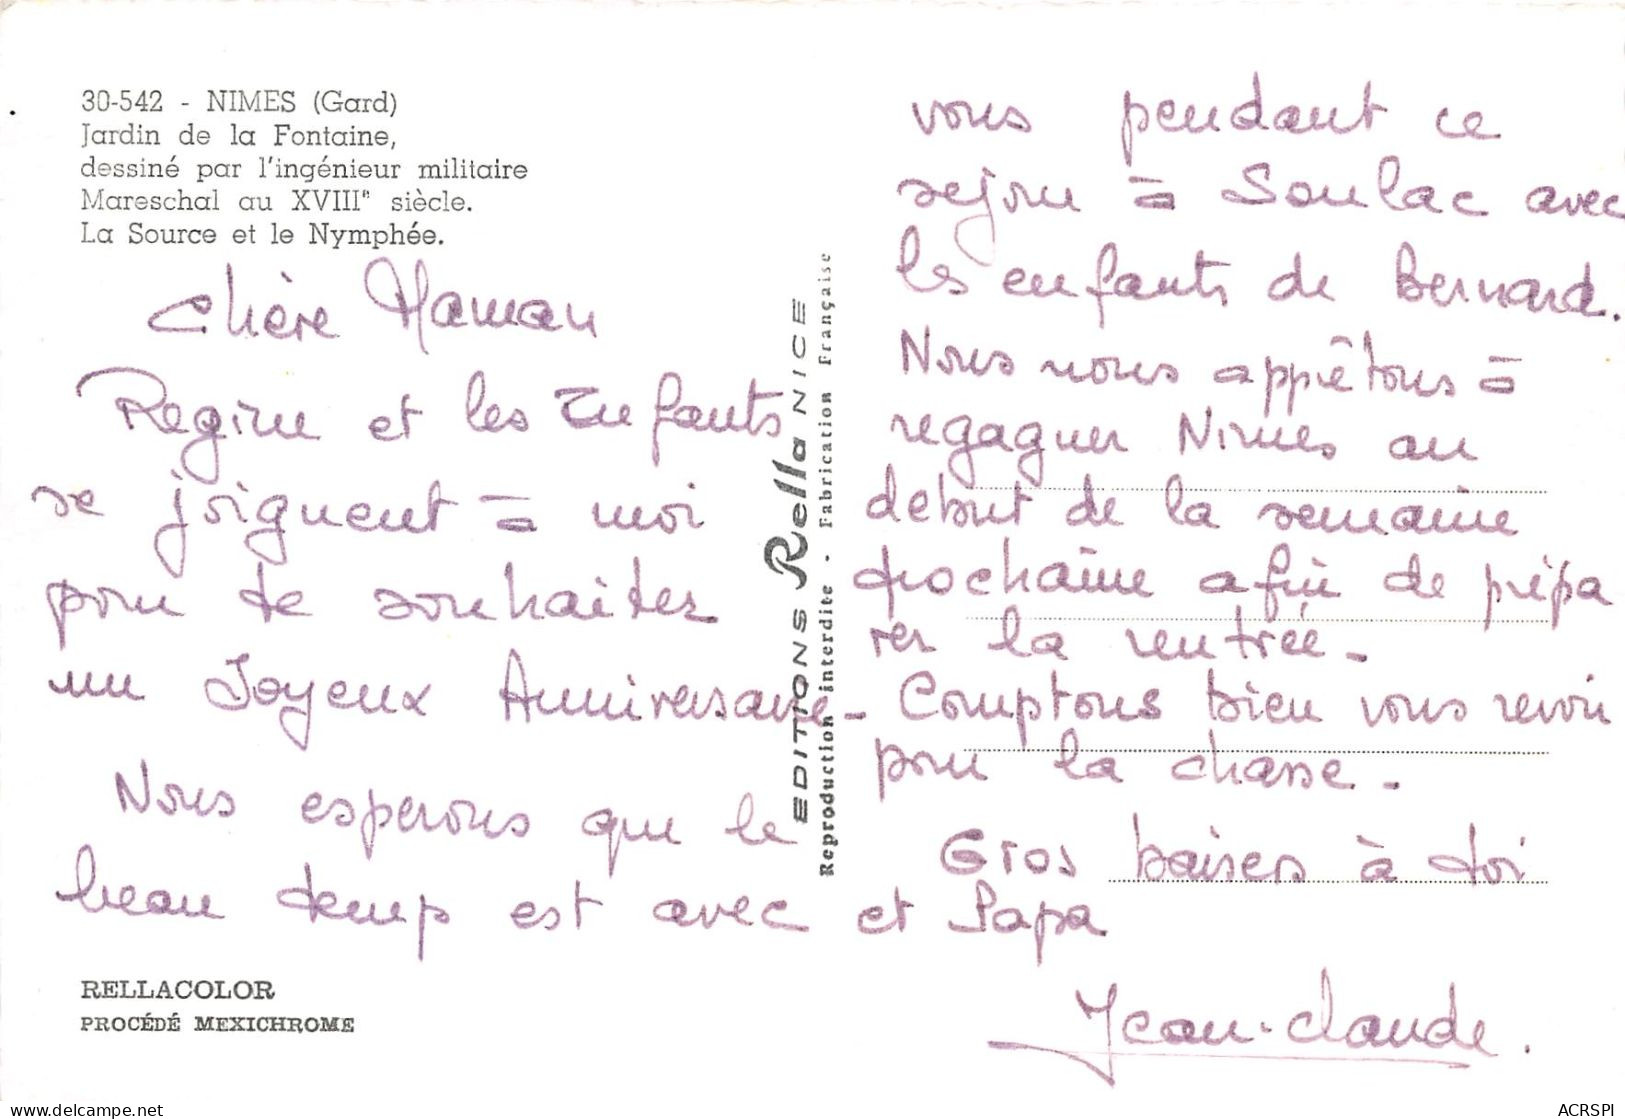 30-542 - NIMES (Gard)
Jardin de la Fontaine,
dessiné par l'ingénieur militaire
Mareschal au XVIIIe siècle.
La Source et le Nymphée.
Chère Maman
Regine et les Enfants
se joignent à moi
pour te souhaiter
un Joyeux Anniversaire -
Nous esperons que le
beau temp est avec
vous pendant ce
sejour à Soulac avec
les enfants de Bernard.
Nous nous appêtons à
regagner Nimes au
debut de la semaine
prochaine afin de prépa
rer la rentrée -
Comptons bien vous revoir
pour la chasse -
Gros baisers à toi
et Papa
Jean-Claude.
EDITIONS Rella NICE
Reproduction interdite - Fabrication Française
RELLACOLOR
PROCÉDÉ MEXICHROME
delcampe.net
ACRSPI